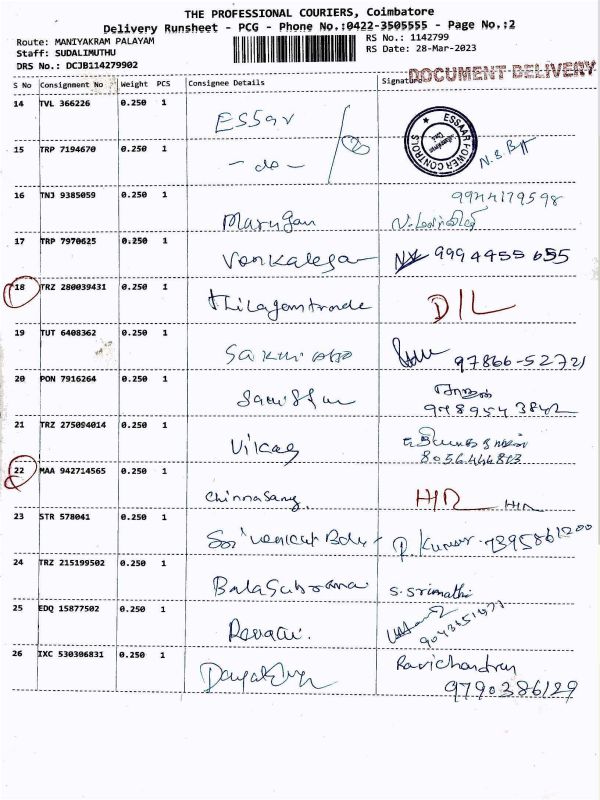 THE PROFESSIONAL COURIERS, Coimbatore
Delivery Runsheet - PCG - Phone No.:0422-3505555 - Page No.:2
Route: MANIYAKRAM PALAYAM
RS No.: 1142799
Staff: SUDALIMUTHU
RS Date: 28-Mar-2023
DRS No.: DCJB114279902
DOCUMENT DELIVERY
S No Consignment No Weight PCS Consignee Details Signature
14 TVL 366226 0.250 1 Essar
ESSAAR POWER CONTROLS
15 TRP 7194670 0.250 1 - do -
16 TNJ 9385059 0.250 1 Marugan
9944179598
17 TRP 7970625 0.250 1 Venkalesan 9994455655
18 TRZ 280039431 0.250 1 D/L
19 TUT 6408362 0.250 1 97866-52721
20 PON 7916264 0.250 1
9789543842
21 TRZ 275094014 0.250 1 Vikas
8056444813
22 MAA 942714565 0.250 1 Chinnasany
23 STR 578041 0.250 1 R. Kumar. 7395861200
24 TRZ 215199502 0.250 1 Balasubrama S. Srimathi
25 EDQ 15877502 0.250 1 Revati.
9043651471
26 IXC 530306831 0.250 1 Ravichandran
9790386129